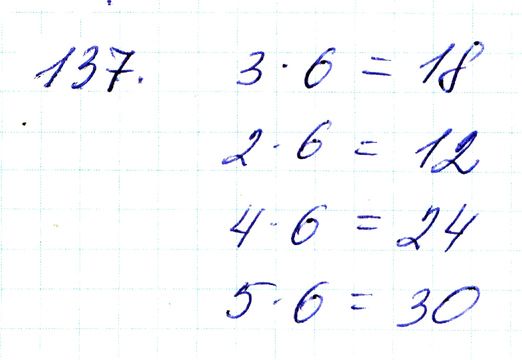 137. 3 · 6 = 18
2 · 6 = 12
4 · 6 = 24
5 · 6 = 30